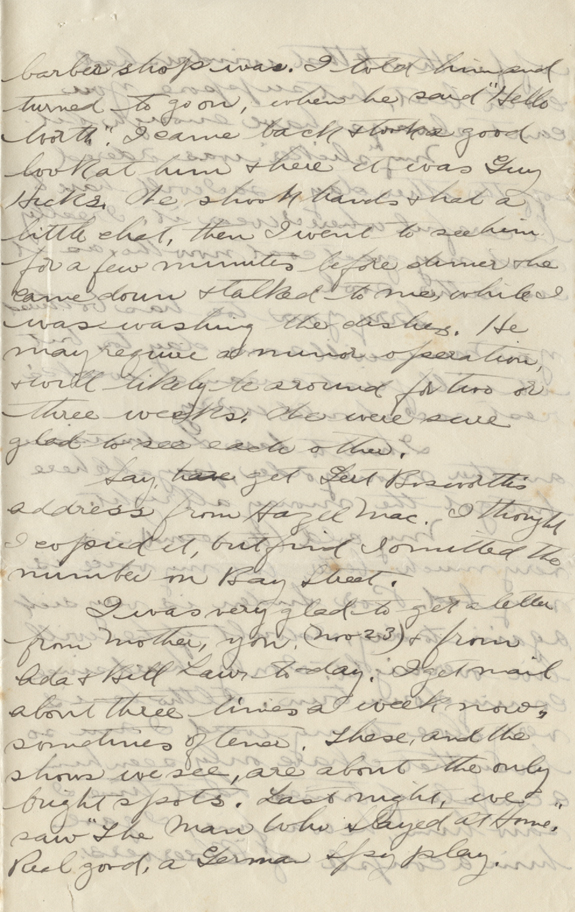 barber shop was. I told him and
turned to go on, when he said "Hello
Worth". I came back & took a good
look at him & there it was Guy
Hicks. We shook hands & had a
little chat, then I went to see him
for a few minutes before dinner & he
came down & talked to me while I
was washing the dishes. He
may require a minor operation,
& will likely be around for two or
three weeks. We were sure
glad to see each other.
Say, get Gert Bosworth's
address from Hazel Mac. I thought
I copied it, but find I omitted the
number on Bay Street.
I was very glad to get a letter
from Mother, you (Nov 23) & from
Ada & Bill Laws to-day. I get mail
about three times a week now,
sometimes oftener. These, and the
shows we see, are about the only
bright spots. Last night, we
saw "The Man Who Stayed at Home."
Real good, a German spy play.